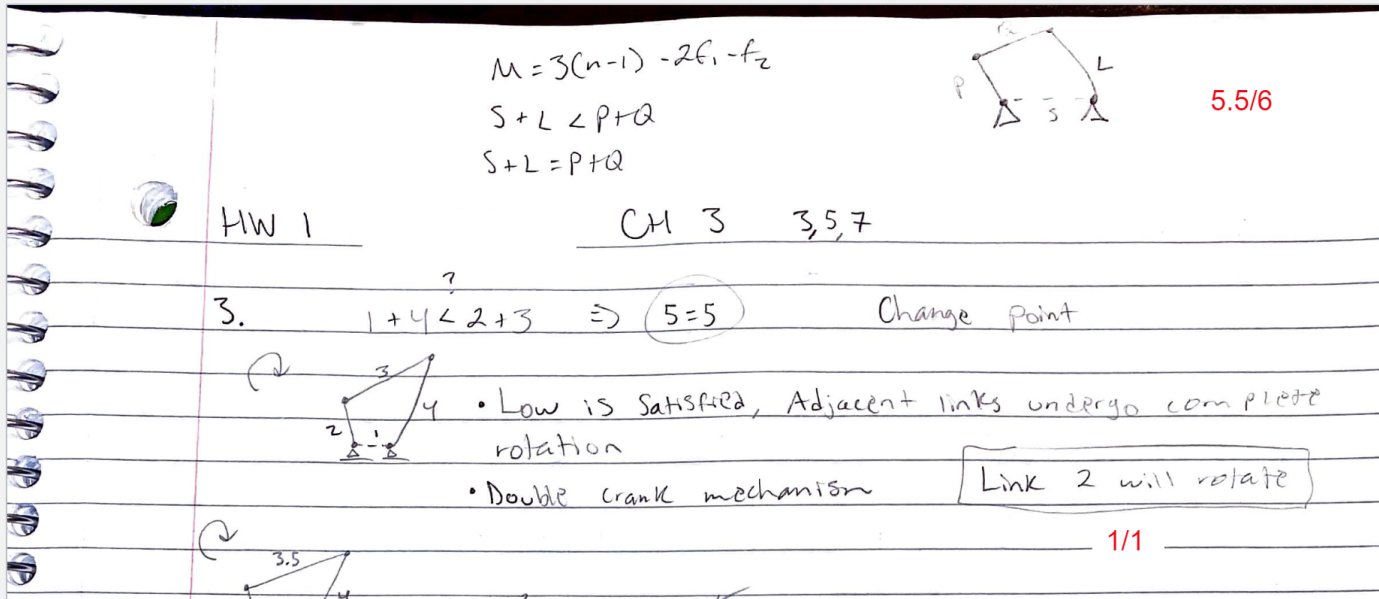 M = 3(n-1) - 2f₁ - f₂
L
P
S
5.5/6
S + L < P+Q
S+L = P+Q
HW 1 CH 3 3,5,7
?
3. 1+4 < 2+3 ⇒ 5=5 Change point
3
4
2
1
• Low is satisfied, Adjacent links undergo complete
rotation
• Double crank mechanism
Link 2 will rotate
1/1
3.5
4